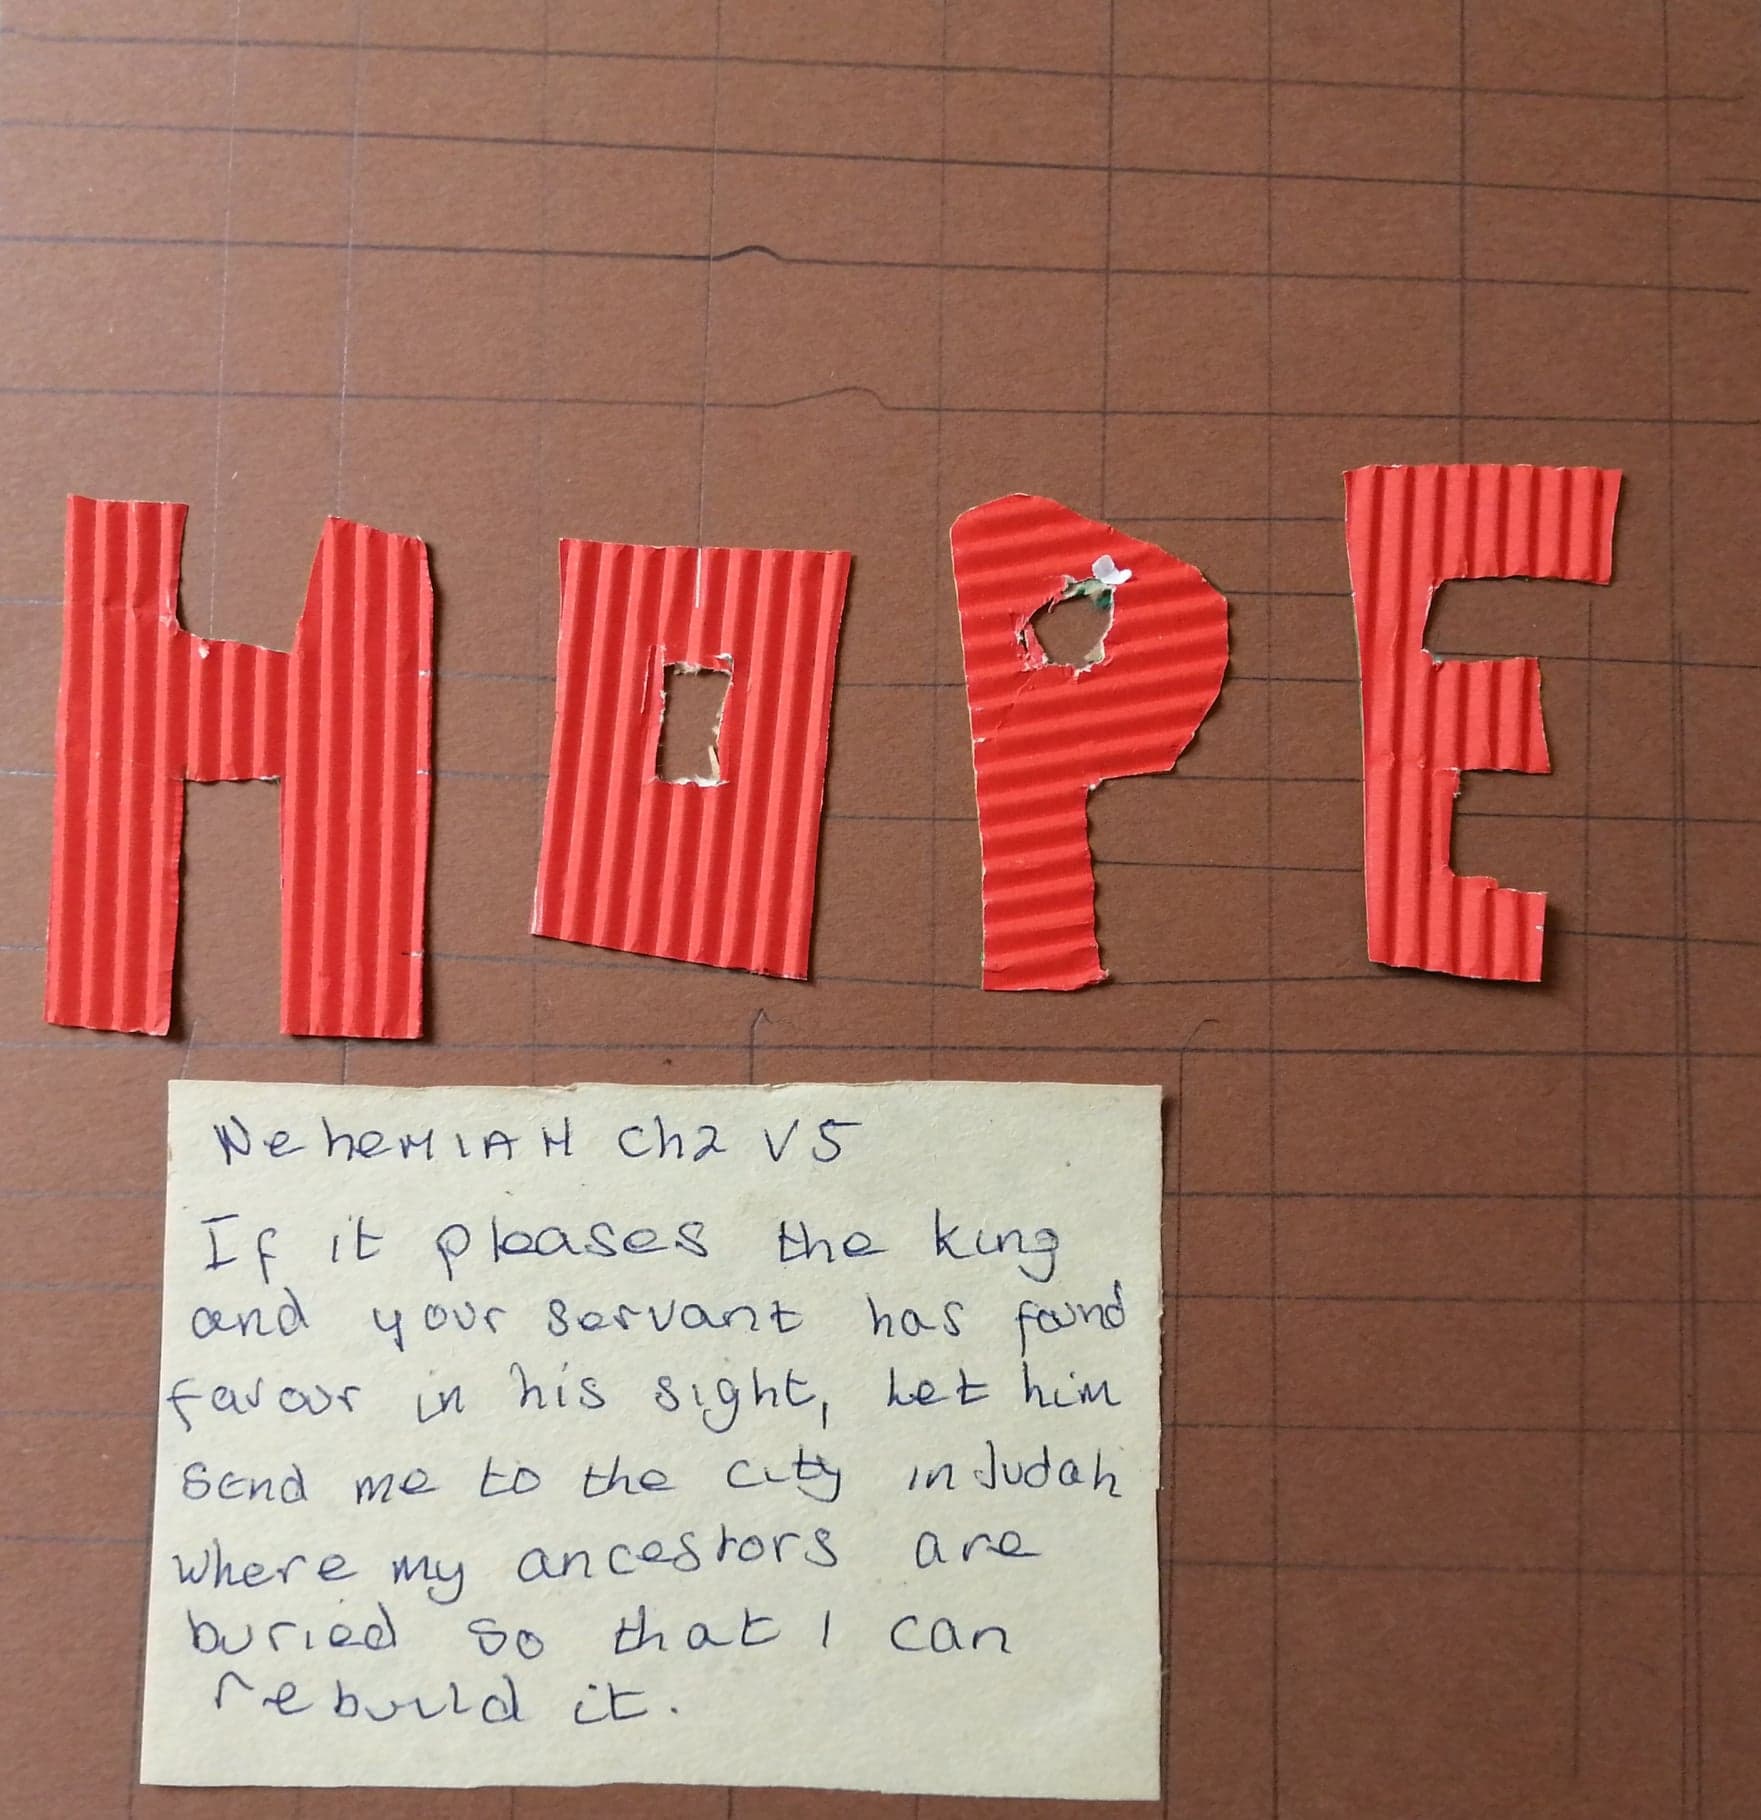 HOPE
NeheMIAH Ch2 V5
If it pleases the king
and your servant has found
favour in his sight, Let him
send me to the city in Judah
where my ancestors are
buried so that I can
rebuild it.